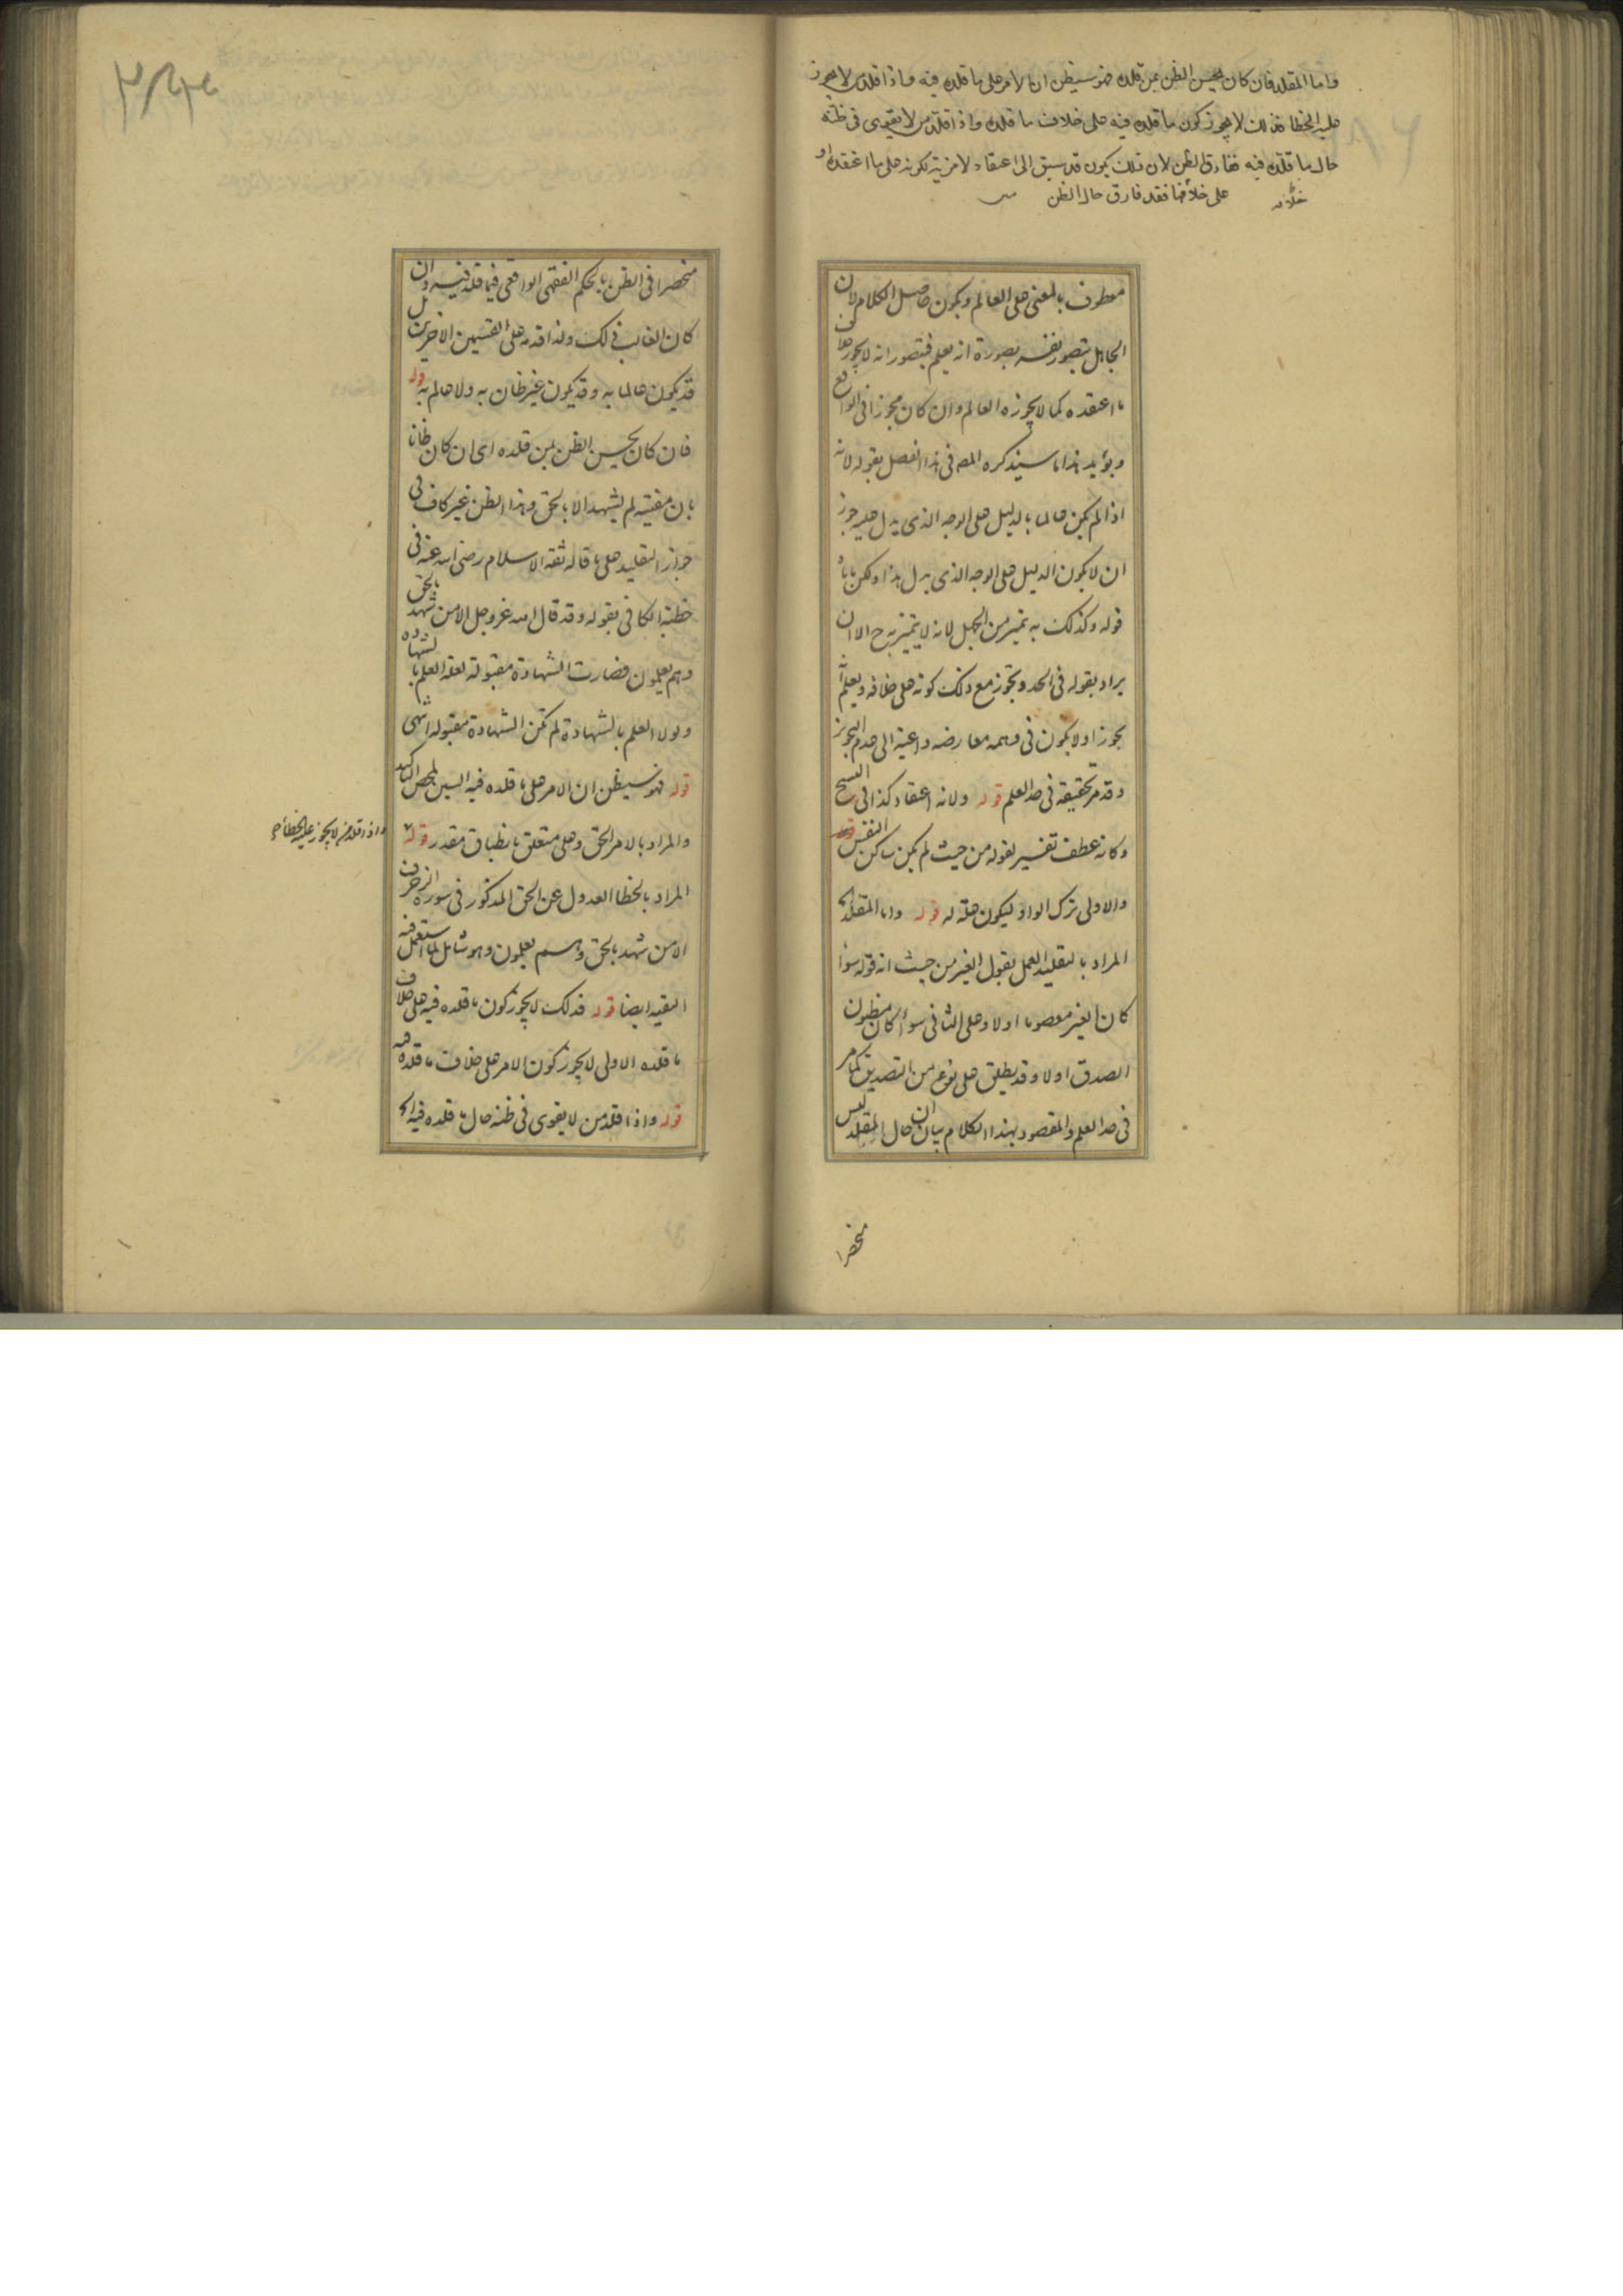 واما المقلد فان كان يحسن الظن بمن قلده فهو سيظن ان الامر على ما قلده فيه واذا قلد من لا يجوز
عليه الخطا فذلك لا يجوز كون ما قلده فيه على خلاف ما قلده واذا قلد من لا يقوى فى ظنه
حال ما قلده فيه ففارق الظن لان ذلك يكون قد سبق الى اعتقاد لا مزية لكونه على ما اعتقده او
على خلافها فقد فارق حال الظن
خلافه
معطوف بالمعنى على العالم ويكون حاصل الكلام لان
الجاهل يتصور نفسه بصورة انه يعلم فيتصور انه لا يجوز خلاف
ما اعتقده كما لا يجوزه العالم وان كان مجوزا فى الواقع
ويؤيد هذا ما سيذكره المص فى هذا الفصل بقوله لانه
اذا لم يكن عالما بالدليل على الوجه الذى يدل عليه جوز
ان لا يكون الدليل على الوجه الذى يدل هذا ولكن ياباه
قوله وكذلك به تميز من الجهل لانه لا يتميز به ح الا ان
يراد بقوله فى الحد وتجوز مع ذلك كونه على خلافه ويعلم انه
يجوز او لا يكون فى وهمه معارضه داعية الى عدم التجويز
وقد مر تحقيقه فى حد العلم قوله ولانه اعتقاد كذا فى النسخ
وكانه عطف تفسير لقوله من حيث لم يكن ساكن النفس
والاولى ترك الواو ليكون علة له قوله واما المقلد الخ
المراد بالتقليد العمل بقول الغير من حيث انه قوله سواء
كان الغير معصوما او لا وعلى الثانى سواء كان مظنون
الصدق او لا وقد يطلق على نوع من التصديق كما مر
فى حد العلم والمقصود بهذا الكلام بيان ان حال المقلد ليس
منحصرا
منحصرا فى الظن بالحكم الفقهى الواقعى فيما قلد فيه وان
كان الغالب ذلك ولذا قدمه على القسمين الاخرين بل
قد يكون عالما به وقد يكون غير ظان به ولا عالم به قوله
فان كان يحسن الظن بمن قلده اى ان كان ظانا
بان مفتيه لم يشهد الا بالحق وهذا الظن غير كاف فى
جواز التقليد على ما قاله ثقة الاسلام رضى الله عنه فى
خطبة الكافى بقوله وقد قال الله عز وجل الا من شهد بالحق
وهم يعلمون فصارت الشهادة مقبولة لعلة العلم بالشهادة
ولولا العلم بالشهادة لم تكن الشهادة مقبولة انتهى
قوله فهو سيظن ان الامر على ما قلده فيه السين لمحض التاكيد
والمراد بالامر الحق وعلى متعلق بانطباق مقدر قوله
واذا قلد من لا يجوز عليه الخطا الخ
المراد بالخطا العدول عن الحق المذكور فى سورة الزخرف
الا من شهد بالحق وهم يعلمون وهو شامل لما استعمل فيه
التقيه ايضا قوله فذلك لا يجوز كون ما قلده فيه على خلاف
ما قلده الاولى لا يجوز كون الامر على خلاف ما قلده فيه
قوله واذا قلد من لا يقوى فى ظنه حال ما قلده فيه الخ